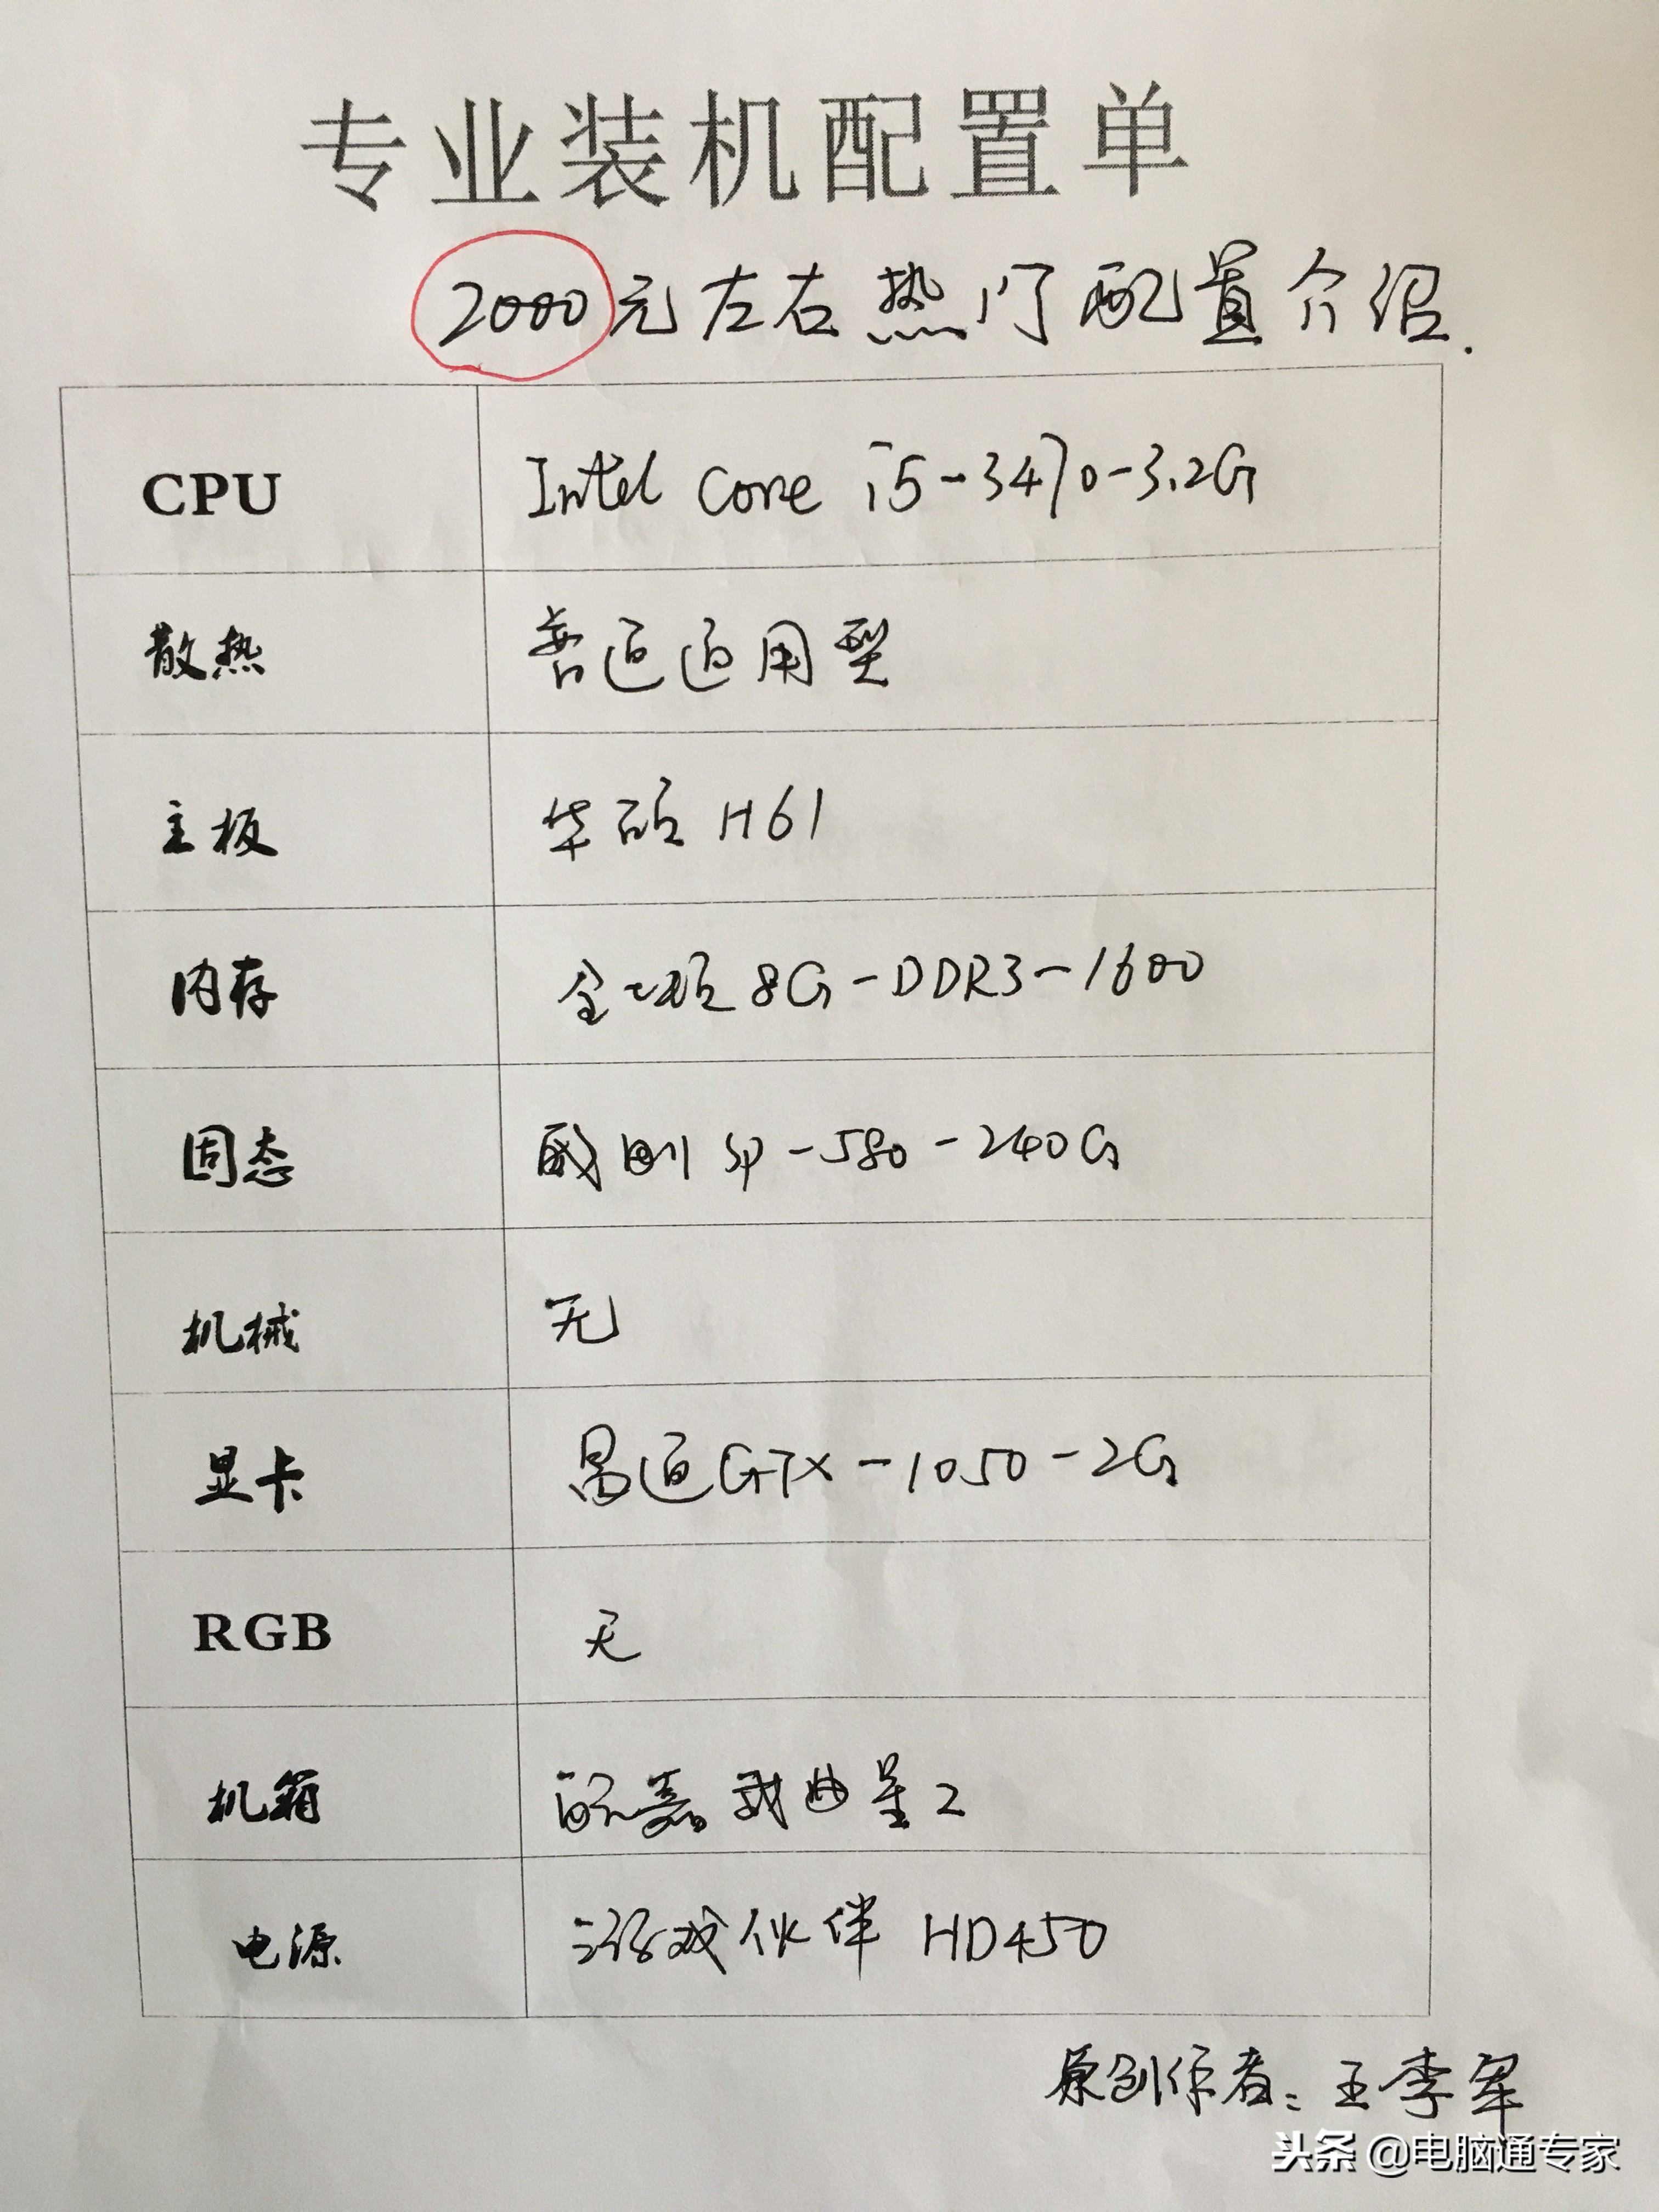 专业装机配置单
2000元左右热门配置介绍.
CPU Intel Core i5-3470-3.2G
散热 普通通用型
主板 华硕 H61
内存 金士顿 8G-DDR3-1600
固态 SP-580-240G
机械 无
显卡 昂达GTX-1050-2G
RGB 无
机箱 星2
电源 游戏伙伴 HD450
原创作者:王李军
头条 @电脑通专家